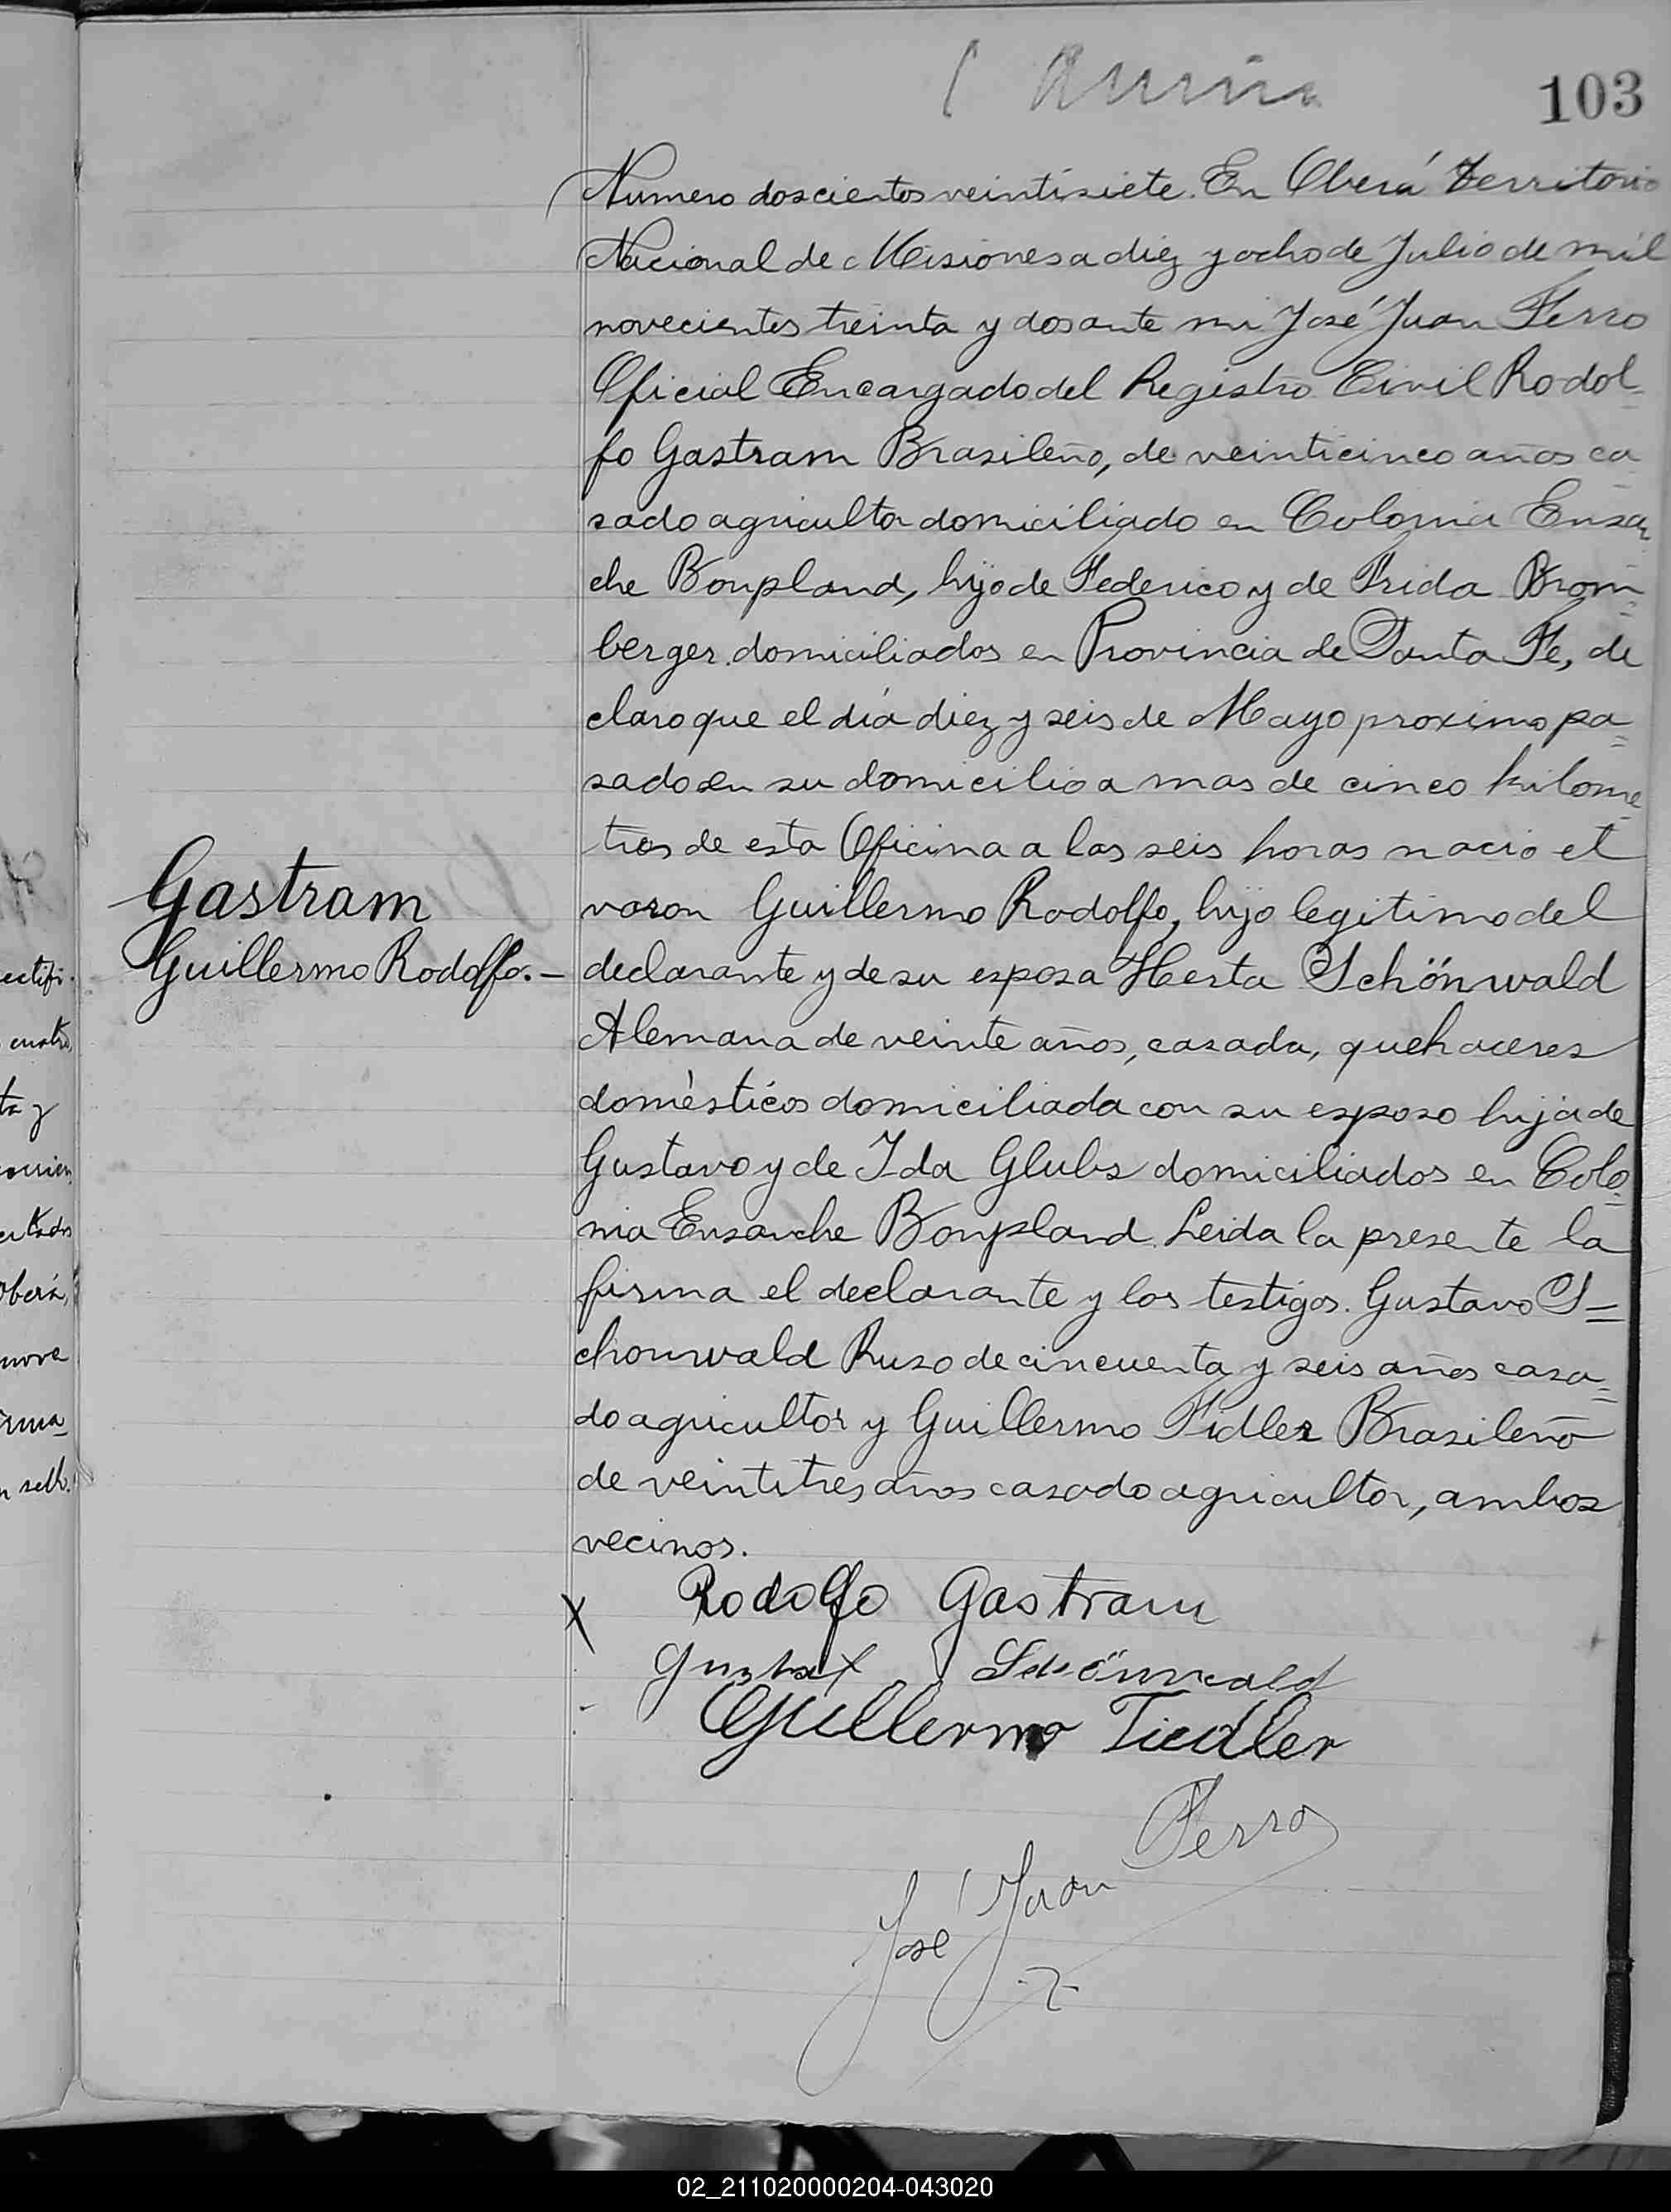 103
Numero doscientos veintisiete. En Oberá Territorio
Nacional de Misiones a diez y ocho de Julio de mil
novecientos treinta y dos ante mi José Juan Ferro
Oficial Encargado del Registro Civil Rodol-
fo Gastram Brasileño, de veinticinco años ca
sado agricultor domiciliado en Colonia Ensan
che Bonpland, hijo de Federico y de Frida Brom=
berger domiciliados en Provincia de Santa Fe, de
claro que el día diez y seis de Mayo proximo pa=
sado en su domicilio a mas de cinco kilome=
tros de esta Oficina a las seis horas nacio el
Gastram
varon Guillermo Rodolfo, hijo legitimo del
Guillermo Rodolfo.-
declarante y de su esposa Herta Schönwald
Alemana de veinte años, casada, quehaceres
domésticos domiciliada con su esposo hija de
Gustavo y de Ida Glubs domiciliados en Colo=
nia Ensanche Bonpland. Leida la presente la
firma el declarante y los testigos. Gustavo S=
chonwald Ruso de cincuenta y seis años casa=
do agricultor y Guillermo Fidler Brasileño
de veintitres años casado agricultor, ambos
vecinos.
X Rodolfo Gastram
Gustaf Schönwald
Guillermo Fiedler
José Juan Ferro
ectifi-
cuatro,
ta y
Oberá,
nove
irma
02_211020000204-043020